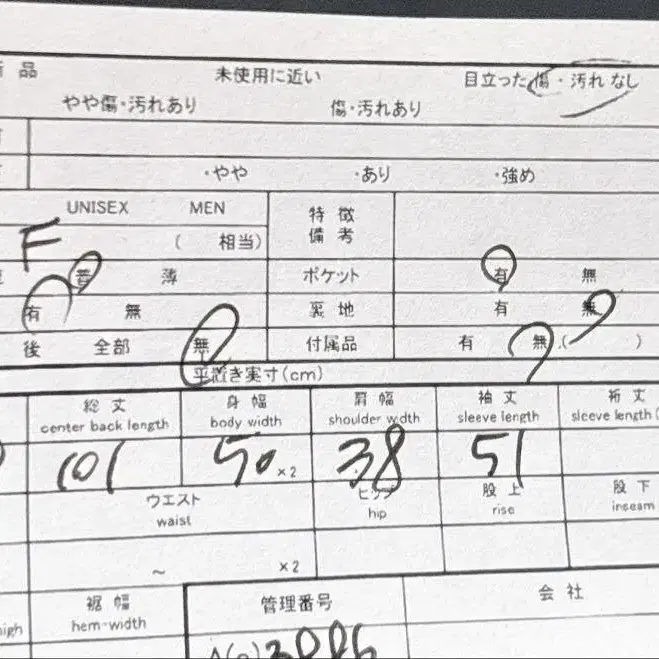 品 未使用に近い 目立った傷・汚れなし
やや傷・汚れあり 傷・汚れあり
・やや ・あり ・強め
UNISEX MEN 特徴
備考
F ( 相当)
普 薄 ポケット 有 無
有 無 裏地 有 無
後 全部 無 付属品 有 無 ( )
平置き実寸(cm)
総丈 身幅 肩幅 袖丈 裄丈
center back length body width shoulder width sleeve length sleeve length(
101 50 ×2 38 51
ウエスト ヒップ 股上 股下
waist hip rise inseam
~ ×2
裾幅 管理番号 会社
hem-width